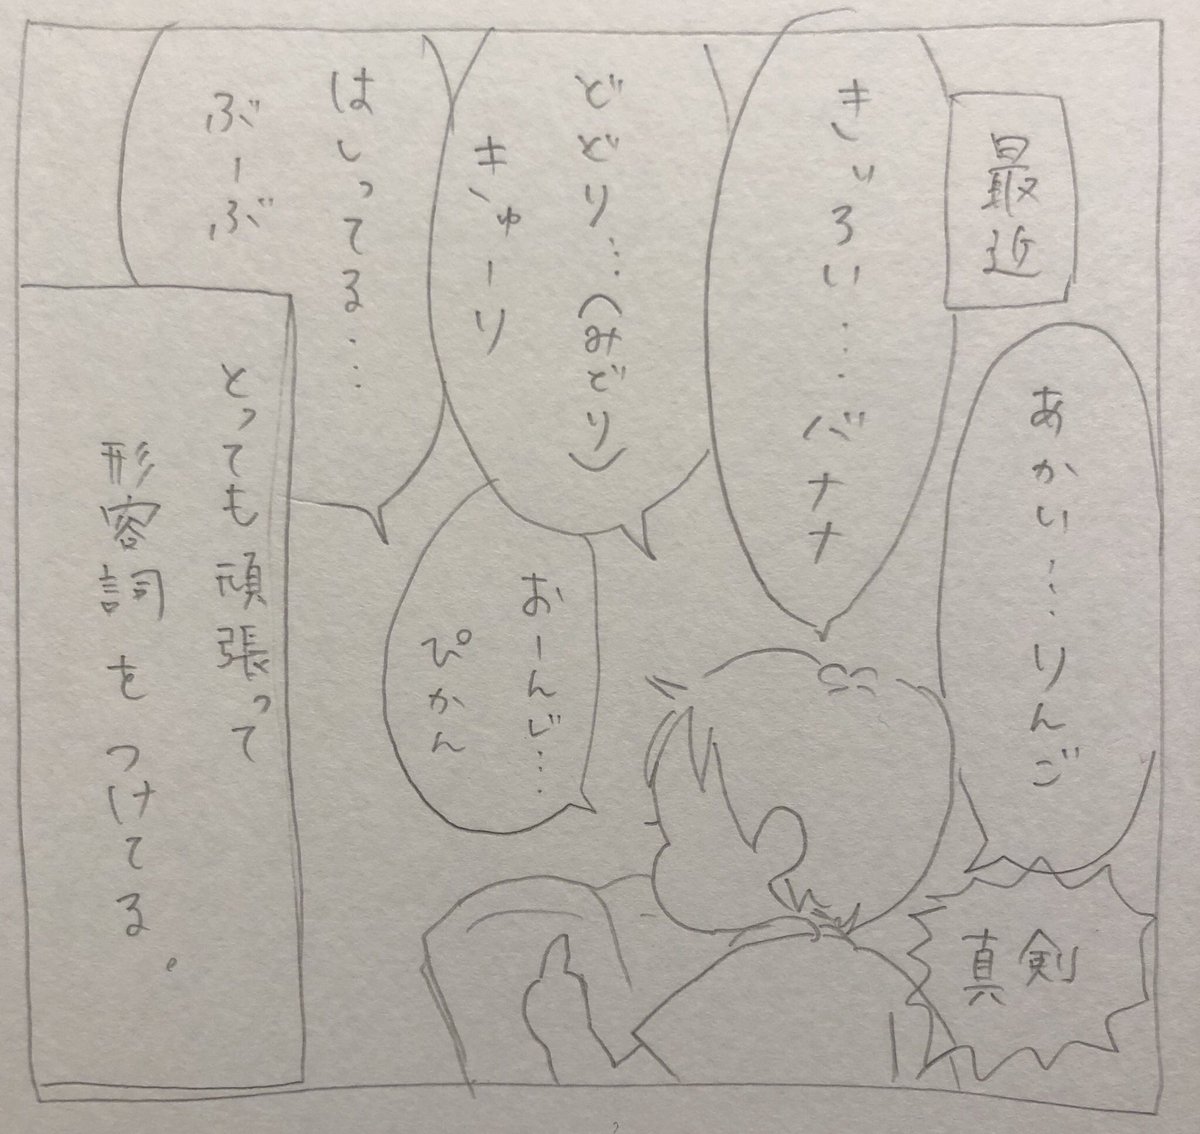 最近
あかい…りんご
きいろい…バナナ
どどり…(みどり)
きゅーり
はしってる…
ぶーぶ
おーんじ…
ぴかん
真剣
とっても頑張って
形容詞をつけてる。